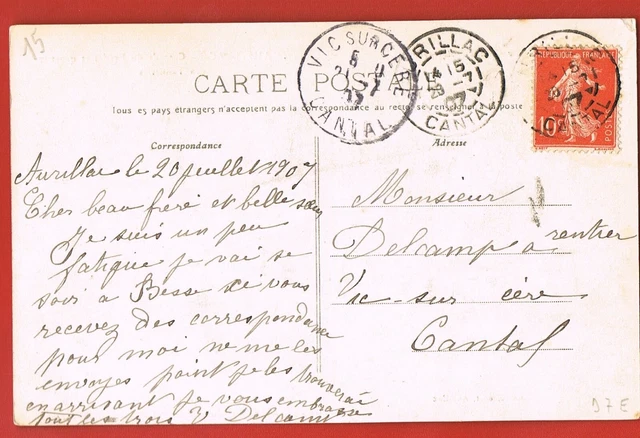 15
VIC SUR CERE
CANTAL
AURILLAC
15
CANTAL
CARTE POSTALE
Tous les pays étrangers n'acceptent pas la correspondance au recto se renseigner à la poste
REPUBLIQUE FRANÇAISE
10
POSTES
CANTAL
Correspondance
Adresse
Aurillac le 20 juillet 1907
Cher beau frère et belle sœur
Je suis un peu
fatigue je vai se
soir a Besse si vous
recevez des correspondance
pour moi ne me les
envoyes point je les trouverai
en arrisant je vous embrasse
tout les trois V Delcamp
Monsieur
Delcamp a rentier
Vic-sur cère
Cantal
D7E